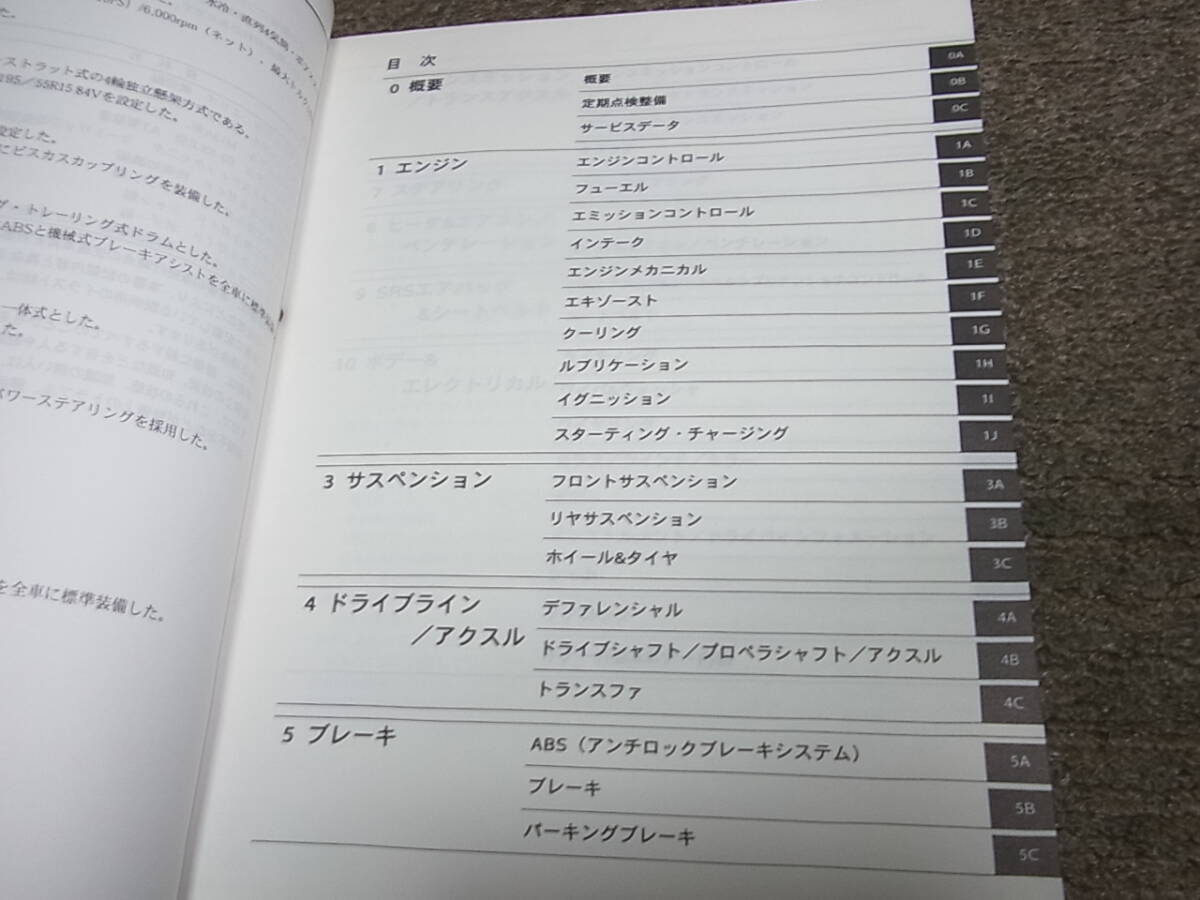 /6,000rpm(ネット)、
ストラット式の4輪独立懸架方式である。
195/55R15 84Vを設定した。
設定した。
にビスカスカップリングを装備した。
グ・トレーリング式ドラムとした。
ABSと機械式ブレーキアシストを全車に標準装
一体式とした。
した。
パワーステアリングを採用した。
を全車に標準装備した。
目 次
0 概要 概要 0A
定期点検整備 0B
サービスデータ 0C
1 エンジン エンジンコントロール 1A
フューエル 1B
エミッションコントロール 1C
インテーク 1D
エンジンメカニカル 1E
エキゾースト 1F
クーリング 1G
ルブリケーション 1H
イグニッション 1I
スターティング・チャージング 1J
3 サスペンション フロントサスペンション 3A
リヤサスペンション 3B
ホイール&タイヤ 3C
4 ドライブライン
/アクスル
デファレンシャル 4A
ドライブシャフト/プロペラシャフト/アクスル 4B
トランスファ 4C
5 ブレーキ ABS(アンチロックブレーキシステム) 5A
ブレーキ 5B
パーキングブレーキ 5C